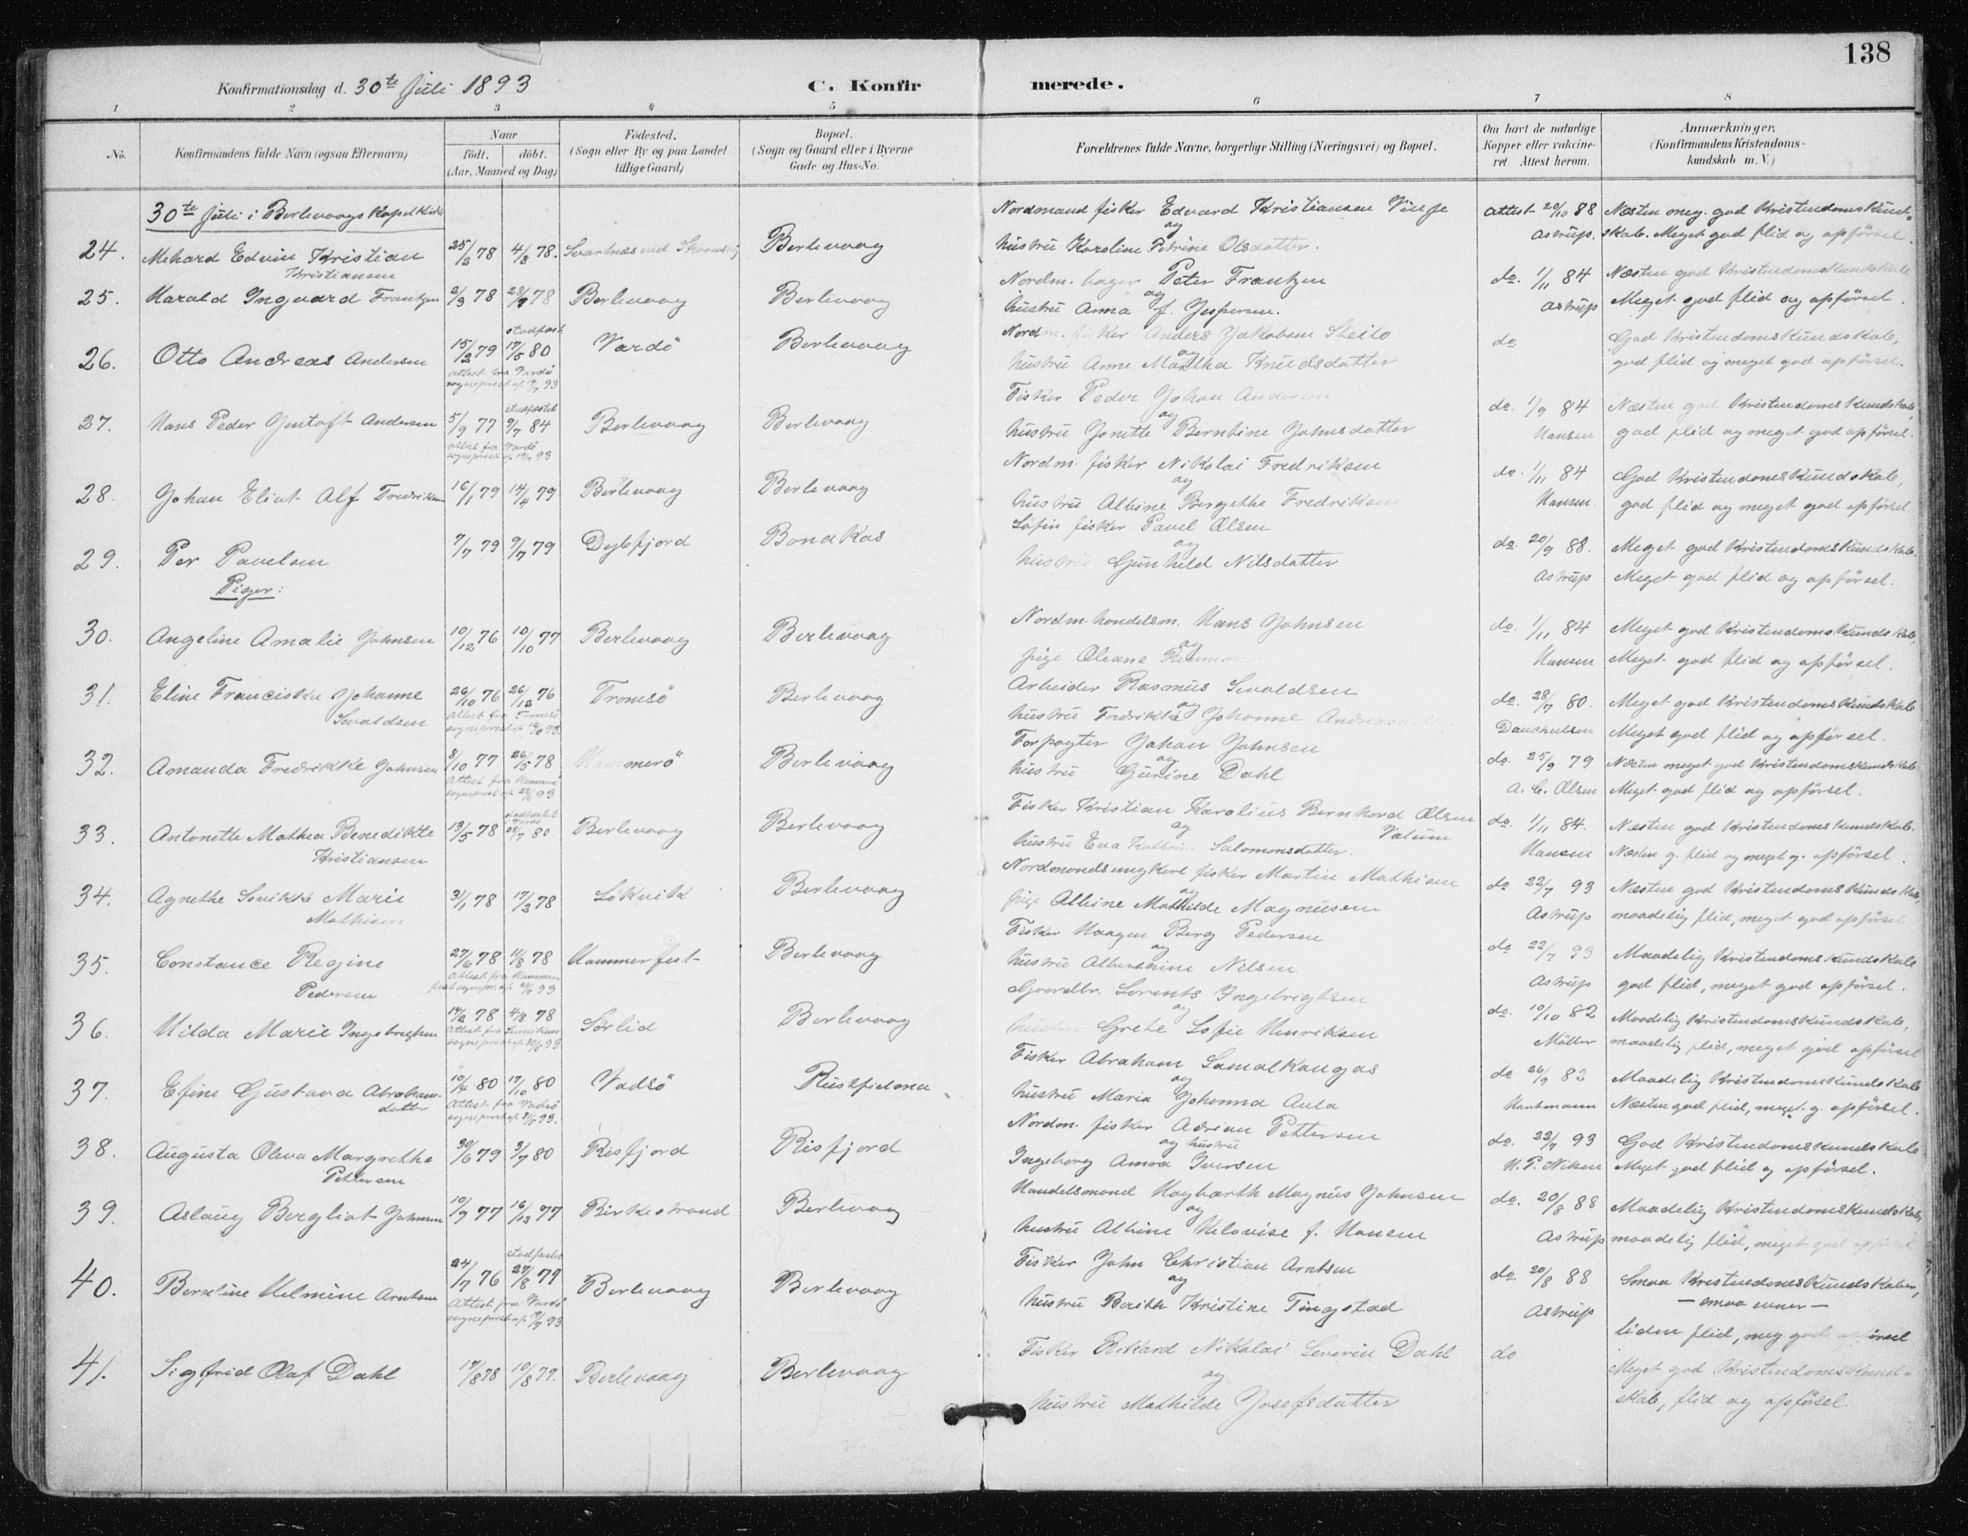 138
Konfirmationsdag d. 30te Juli 1893 C. Konfirmerede.
1 2 3 4 5 6 7 8
No. Konfirmandens fulde Navn (ogsaa Efternavn) Naar födt. döbt. (Aar, Maaned og Dag) Födested. (Sogn eller By og paa Landet tillige Gaard) Bopæl. (Sogn og Gaard eller i Byerne Gade og Hus-No. Forældrenes fulde Navne, borgerlige Stilling (Næringsvei) og Bopæl. Om havt de naturlige Kopper eller vakcineret. Attest herom. Anmærkninger. (Konfirmandens Kristendomskundskab m. V.)
30te Juli i Berlevaags Kapel
24. Mehard Edvin Kristian Kristiansen 25/2 78 4/8 78. Berlevaag
Nordmand fisker Edvard Kristiansen og hustru Karoline Petrine Olsdatter. Attest 20/10 88 Astrup. Næsten meg. god Kristendomskundskab. Meget god flid og opførsel.
25. Harald Ingvard Frantzen 2/3 78 78 Berlevaag Berlevaag
Nordm. bager Peter Frantzen og hustru Anna f. Jespersen. do. 1/11 84 Astrup Næsten god Kristendomskundskab Meget god flid og opførsel.
26. Otto Andreas Andersen 15/2 79 stadfæst 17/5 80 Vardö Berlevaag
Attest fra Vardö sogneprest 93
Nordm. fisker Anders Jakobsen og hustru Anne Martha Knudsdatter do God Kristendomskundskab, god flid og meget god opførsel.
27. Hans Peder Gustaft Andersen 5/9 77 stadfæstet 9/7 84 Berlevaag Berlevaag
Attest fra Vardö sogneprest 93
Fisker Peder Johan Andersen og hustru Jonette Berntine Johnsdatter do. 1/9 84 Hansen Næsten god Kristendomskundskab god flid og meget god opførsel.
28. Johan Eliot Alf Fredriksen 16/1 79 14/4 79 Berlevaag Berlevaag
Nordm. fisker Nikolai Fredriksen og hustru Albine Bergethe Fredriksen do. 1/11 84 Hansen. God Kristendomskundskab, god flid og meget god opførsel
29. Per Pavelsen 7/7 79 9/7 79 Bonakas
fisker Pavel Olsen og hustru Gunhild Nilsdatter do. 20/9 88. Astrup Meget god Kristendomskundskab. Meget god flid og opførsel.
Piger:
30. Angeline Amalie Johnsen 10/12 76 10/10 77 Berlevaag Berlevaag
Nordm handelsm. Hans Johnsen og pige Oleane do. 1/11 84 Hansen Meget god Kristendomskundskab, Meget god flid og opførsel.
31. Eline Franciska Johanne Sevaldsen 26/10 76 26/12 76 Tromsö Berlevaag
Attest fra Tromsö sogneprest 93.
Arbeider Rasmus Sevaldsen og hustru Fredrikke Johanne do. 28/7 80. Meget god Kristendomskundskab Meget god flid og opførsel.
32. Amanda Fredrikke Johnsen 8/10 77 26/5 78 Hammerö Berlevaag
Attest fra sogneprest 93
Forpagter Johan Johnsen og hustru Gurine Dahl do. 25/9 79 A. C. Olsen Næsten meget god Kristendomskundskab Meget god flid og opførsel.
33. Antonette Mathea Benedikte Kristiansen 13/5 78 80 Berlevaag Berlevaag
Fisker Kristian Karolius Bernhard Olsen og hustru Eva Kathrine Salomonsdatter. do. 1/11 84. Hansen Næsten god Kristendomskundskab. Næsten g. flid og meget g. opførsel.
34. Agnethe Marie Mathisen 31/1 78 17/3 78 Løkvik Berlevaag
Nordmand ungkarl fisker Martin Mathisen og pige Albine Mathilde Magnusen do 22/7 93 Astrup Næsten god Kristendomskundskab, maadelig flid, meget god opførsel
35. Constance Regine Pedersen 27/6 78 11/8 78 Hammerfest Berlevaag
Attest fra Hammerfest sognepr. 93
Fisker Haagen Berg Pedersen og hustru Albershine Nilsen do 22/7 93 Astrup Maadelig Kristendomskundskab god flid, meget god opførsel.
36. Hilda Marie Ingebrigtsen 78 4/8 78 Sørlid Berlevaag
Attest fra sogneprest 93
Gaardbr. Lorents Ingebrigtsen og hustru Grethe Sofie Henriksen do. 10/10 82 Möller Maadelig Kristendomskundskab, maadelig flid, meget god opførsel
37. Efine Gustava Abrahamsdatter 10/4 80 17/10 80 Vadsö
Attest fra Vadsö sogneprest 93.
Fisker Abraham Samalkangas og hustru Maria Johanna Aula do 26/9 82 Hartmann Maadelig Kristendomskundskab Næsten god flid, meget g. opførsel.
38. Augusta Oleva Margrethe Pettersen 30/6 79 3/7 80 Risfjord Risfjord
Nordm. fisker Adrian Pettersen og hustru Ingeborg Anna Iversen do. 22/7 93 N. P. Nilsen God Kristendomskundskab Meget god flid og opførsel.
39. Aslaug Bergliot Johnsen 10/9 77 16/12 77 Birkestrand Berlevaag
Handelsmand Hagbarth Magnus Johnsen og hustru Albine Helovise f. Hansen do. 20/8 88 Astrup Maadelig Kristendomskundskab, maadelig flid, meget god opførsel
40. Berntine Helmine Arntsen 24/7 76 stadfæstet 27/8 79 Berlevaag Berlevaag
Attest fra Vardö sogneprest 93
Fisker John Christian Arntsen og hustru Berith Kristine Tingstad do. 20/8 88 Astrup Smaa Kristendomskundskaber, — smaa evner — liden flid, meg god opførsel
41. Sigfrid Olaf Dahl 17/8 78 10/8 79. Berlevaag Berlevaag
Fisker Rikard Nikolai Severin Dahl og hustru Mathilde Josefsdatter do Meget god Kristendomskundskab, flid og opførsel.